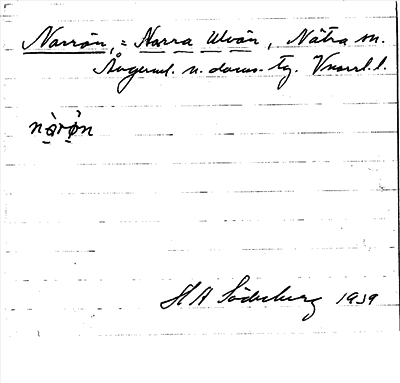 Norrön, = Norra Ulvön, Nätra sn.
Ångerml. n. doms. tg. Vnorrl. l.
nörön
H A Söderberg 1939